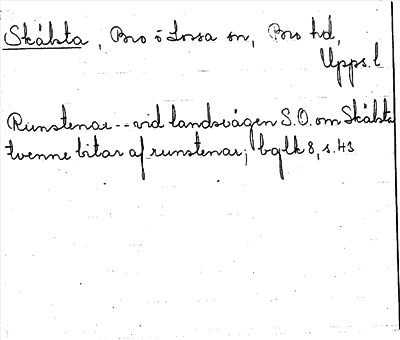 Skålsta, Bro o Lossa sn, Bro hd,
Upps. l
Runstenar -- vid landsvägen S.O. om Skålsta
tvenne bitar af runstenar; bqlk 8, s. 43